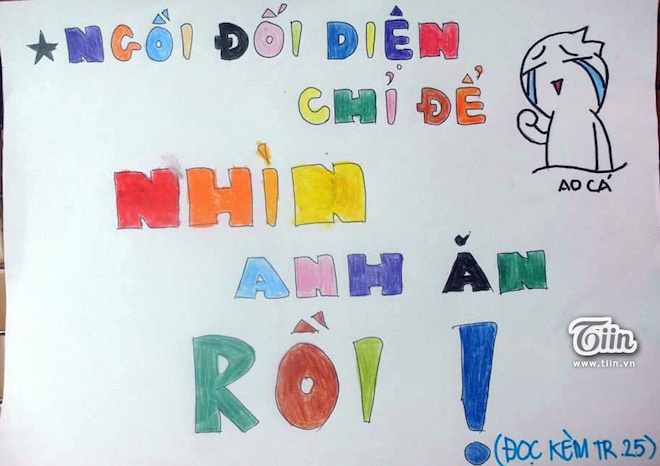 ★NGỒI ĐỐI DIÊN
CHỈ ĐỂ
NHÌN
ANH ĂN
RỒI!
AO CÁ
Tiin
www.tiin.vn
(ĐỌC KÈM TR.25)